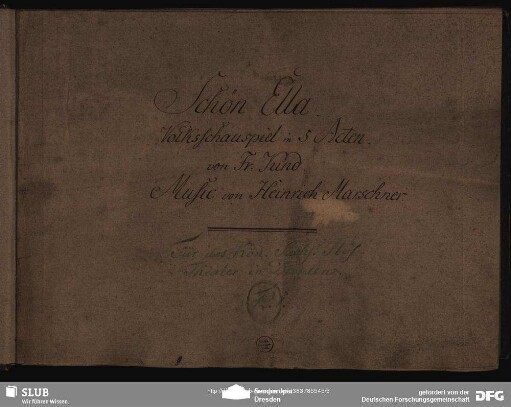 Schön Ella.
Volksschauspiel in 5 Acten.
von Fr. Kind.
Musie von Heinrich Marschner
Für das Kön. Sächs. Hof
Theater in Dresden.
SLUB
Wir führen Wissen.
Dresden
gefördert von der
Deutschen Forschungsgemeinschaft
DFG